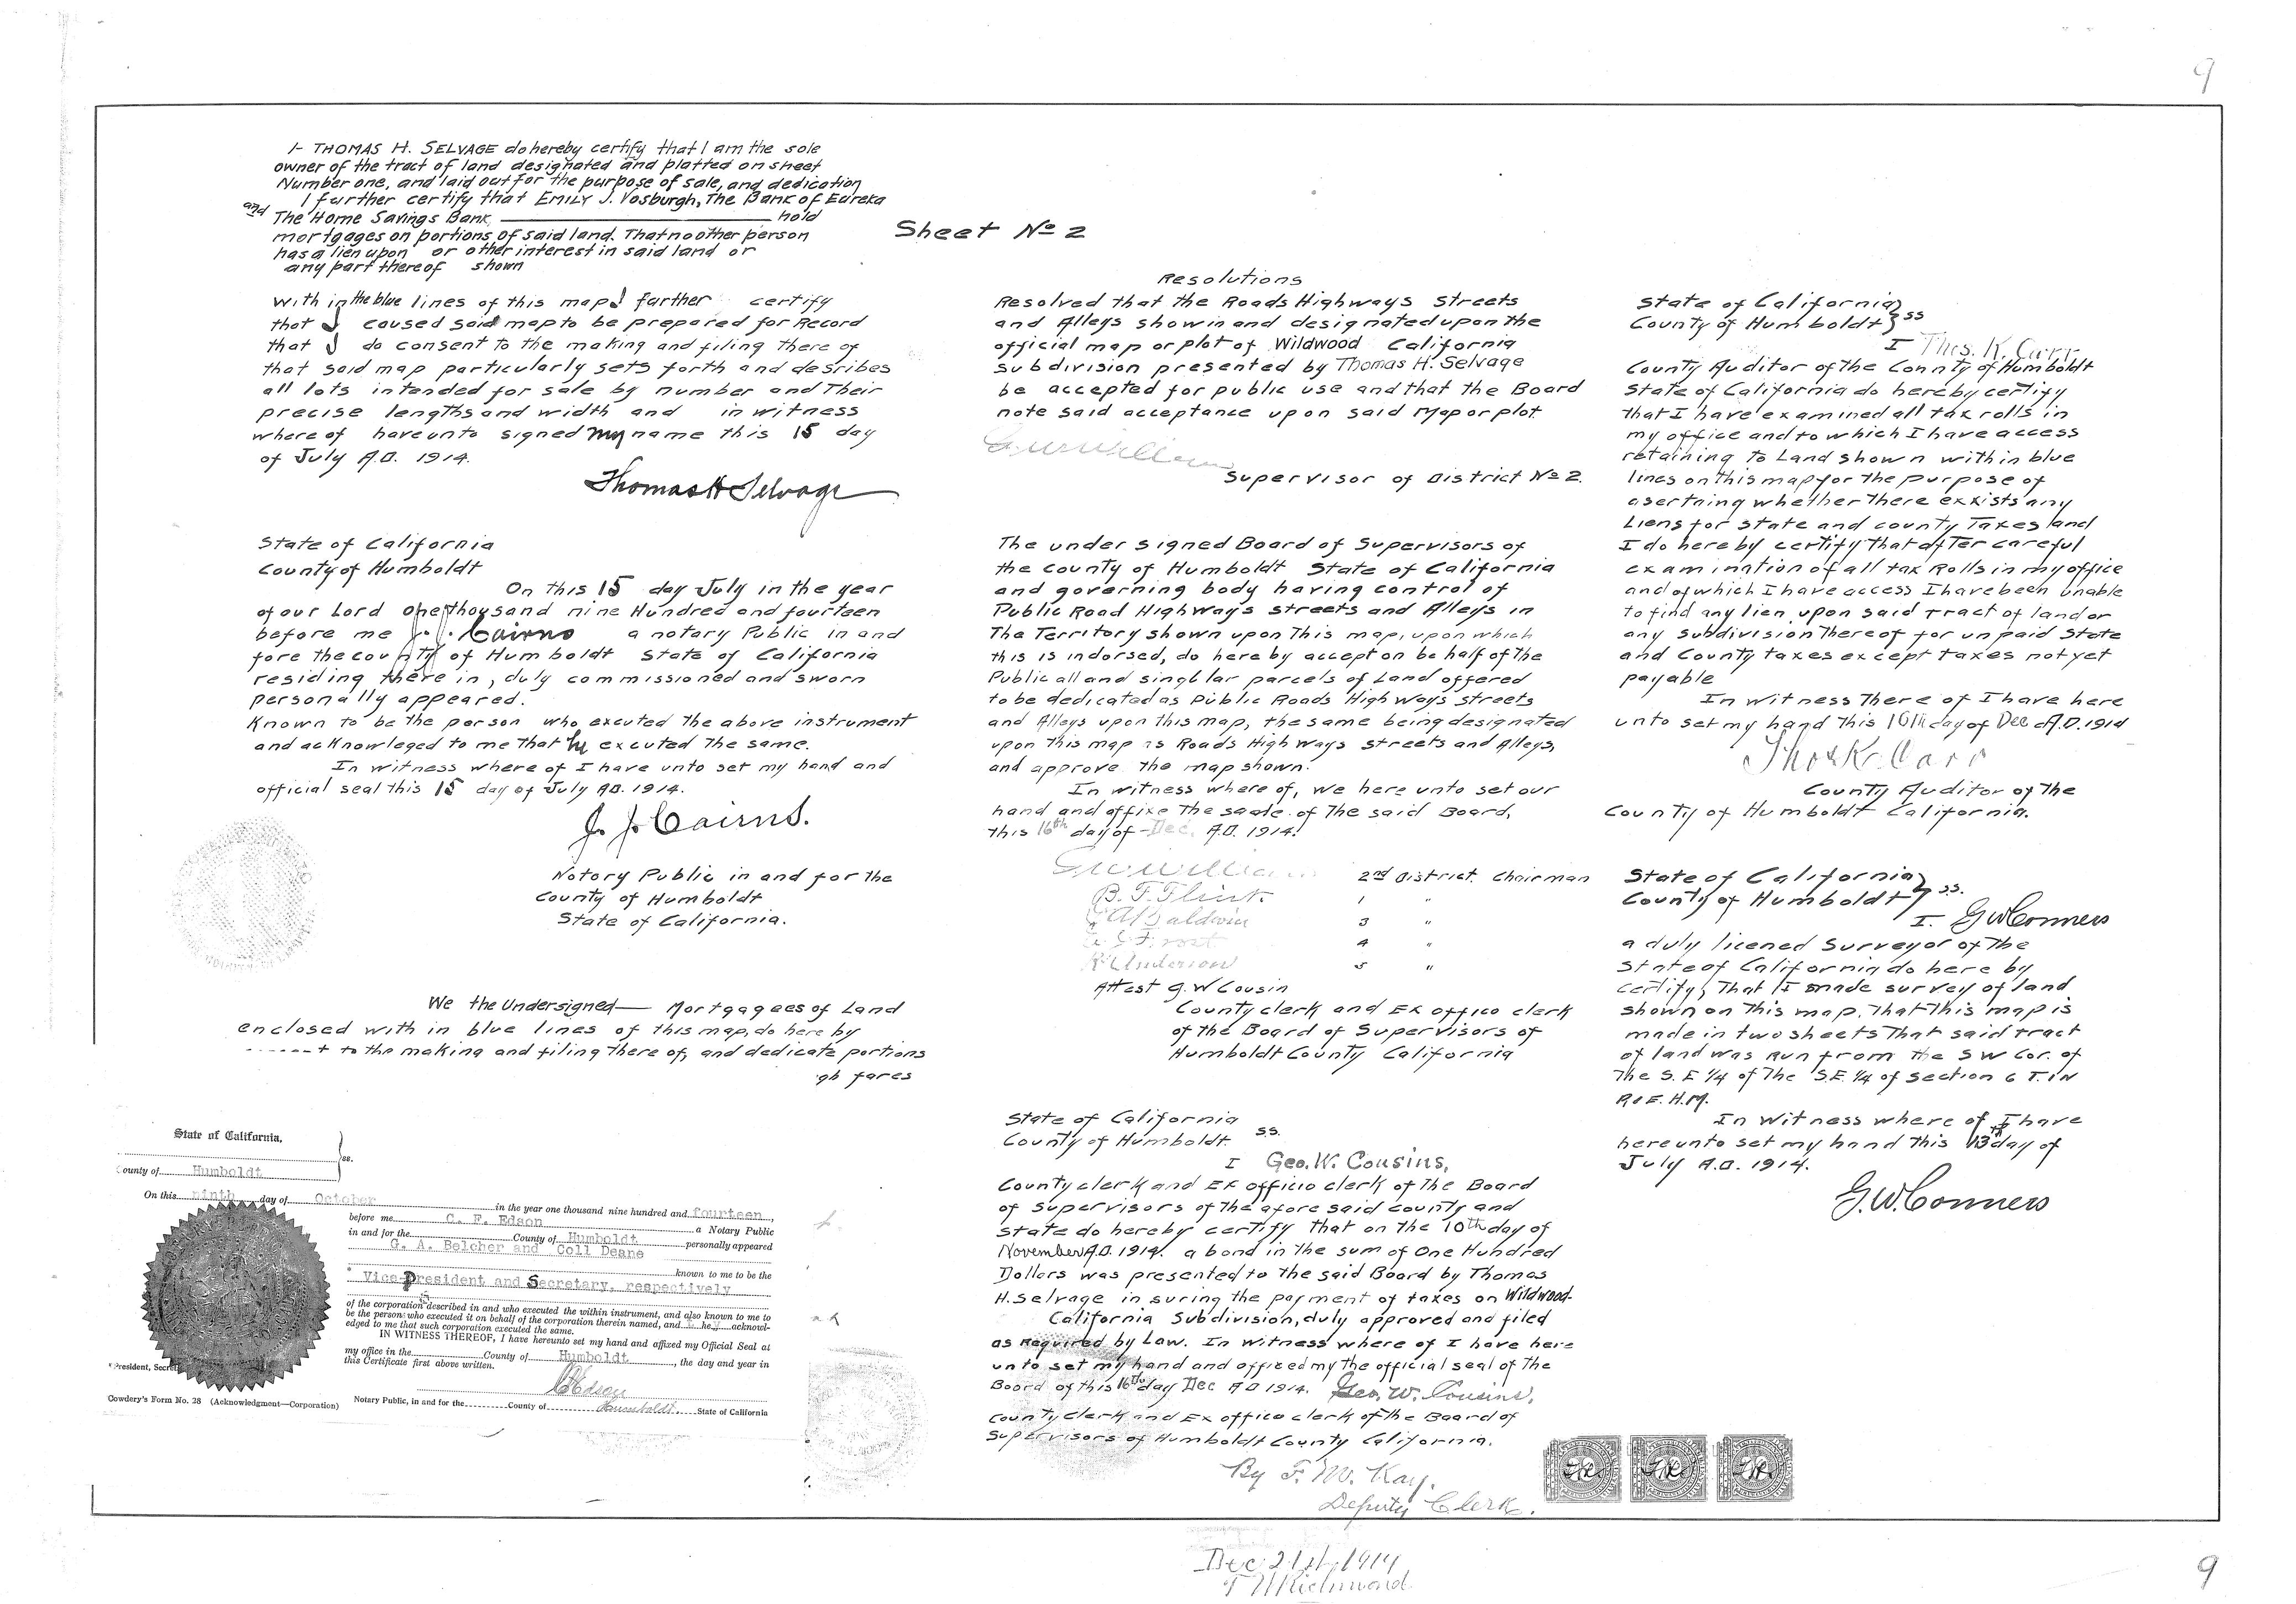 9
I- THOMAS H. SELVAGE do hereby certify that I am the sole
owner of the tract of land designated and platted on sheet
Number one, and laid out for the purpose of sale, and dedication
I further certify that EMILY J. Vosburgh, The Bank of Eureka
and The Home Savings Bank hold
mortgages on portions of said land. That no other person
has a lien upon or other interest in said land or
any part thereof shown
with in the blue lines of this map I further certify
that I caused said map to be prepared for Record
that I do consent to the making and filing there of
that said map particularly sets forth and desribes
all lots intended for sale by number and Their
precise lengths and width and in witness
where of have unto signed my name this 15 day
of July A.D. 1914.
Thomas H Selvage
State of California
County of Humboldt
On this 15 day July in the year
of our Lord one thousand nine Hundred and fourteen
before me J. J. Cairns a notary Public in and
fore the county of Humboldt State of California
residing there in, duly commissioned and sworn
personally appeared.
Known to be the person who executed the above instrument
and acknowleged to me that he excuted the same.
In witness where of I have unto set my hand and
official seal this 15 day of July A.D. 1914.
J. J. Cairns.
Notary Public in and for the
County of Humboldt
State of California.
We the Undersigned— Mortgagees of Land
enclosed with in blue lines of this map, do here by
to the making and filing there of, and dedicate portions
gh fares
State of California,
County of Humboldt ss.
On this ninth day of October in the year one thousand nine hundred and fourteen,
before me C. F. Edson a Notary Public
in and for the County of Humboldt personally appeared
G. A. Belcher and Coll Deane
* known to me to be the
Vice-President and Secretary, respectively
of the corporation described in and who executed the within instrument, and also known to me to
be the persons who executed it on behalf of the corporation therein named, and they acknowl-
edged to me that such corporation executed the same.
IN WITNESS THEREOF, I have hereunto set my hand and affixed my Official Seal at
my office in the County of Humboldt, the day and year in
this Certificate first above written.
*President, Secre
C F Edson
Cowdery's Form No. 28 (Acknowledgment—Corporation) Notary Public, in and for the County of Humboldt, State of California
Sheet No 2
Resolutions
Resolved that the Roads Highways Streets
and Alleys shown and designated upon the
official map or plot of Wildwood California
subdivision presented by Thomas H. Selvage
be accepted for public use and that the Board
note said acceptance upon said Map or plot.
Supervisor of District No 2.
The under signed Board of Supervisors of
the county of Humboldt State of California
and governing body having control of
Public Road Highways streets and Alleys in
The Territory shown upon This map, upon which
this is indorsed, do here by accept on be half of the
Public all and singular parcels of Land offered
to be dedicated as Public Roads High ways streets
and Alleys upon this map, the same being designated
upon this map as Roads High ways streets and Alleys,
and approve the map shown.
In witness where of, we here unto set our
hand and affixe The seale of The said Board,
This 16th day of Dec. A.D. 1914.
2nd District. Chairman
B. F. Flint 1 "
Baldwin 3 "
Frost 4 "
Anderson 5 "
Attest G. W Cousin
County clerk and Ex offico clerk
of the Board of Supervisors of
Humboldt County California
State of California
County of Humboldt. ss.
I Geo. W. Cousins,
County clerk and Ex officio clerk of The Board
of Supervisors of the afore said county and
State do hereby certify that on the 10th day of
November A.D. 1914. a bond in the sum of One Hundred
Dollars was presented to the said Board by Thomas
H. Selvage in suring the payment of taxes on Wildwood-
California Subdivision, duly approved and filed
as Required by Law. In witness where of I have here
unto set my hand and affixed my the official seal of The
Board of this 16th day Dec A D 1914. Geo. W. Cousins,
County Clerk and Ex offico clerk of the Board of
Supervisors of Humboldt County California.
By F. W. Kay.
Deputy Clerk.
State of California
County of Humboldt } ss
I Thos. K. Carr
County Auditor of the County of Humboldt
State of California do hereby certify
that I have examined all tax rolls in
my office and to which I have access
retaining to Land shown within blue
lines on this map for the purpose of
asertaing whether There exxists any
Liens for state and county Taxes and
I do here by certify that after careful
examination of all tax Rolls in my office
and of which I have access I have been unable
to find any lien upon said tract of land or
any subdivision Thereof for unpaid State
and County taxes except taxes not yet
payable
In witness There of I have here
unto set my hand This 16th day of Dec A.D. 1914
Thos K. Carr
County Auditor of The
County of Humboldt California.
State of California
County of Humboldt } ss.
I. G W Conners
a duly licened Surveyor of The
State of California do here by
certify, That I made survey of land
shown on This map. That This map is
made in two sheets That said tract
of land was Run from the S W Cor. of
The S. E 1/4 of The S.E. 1/4 of Section 6 T. 1 N
R. 1 E. H. M.
In witness where of I have
here unto set my hand This 13th day of
July A.D. 1914.
G. W. Conners
Dec 21st, 1914
Richmond
9